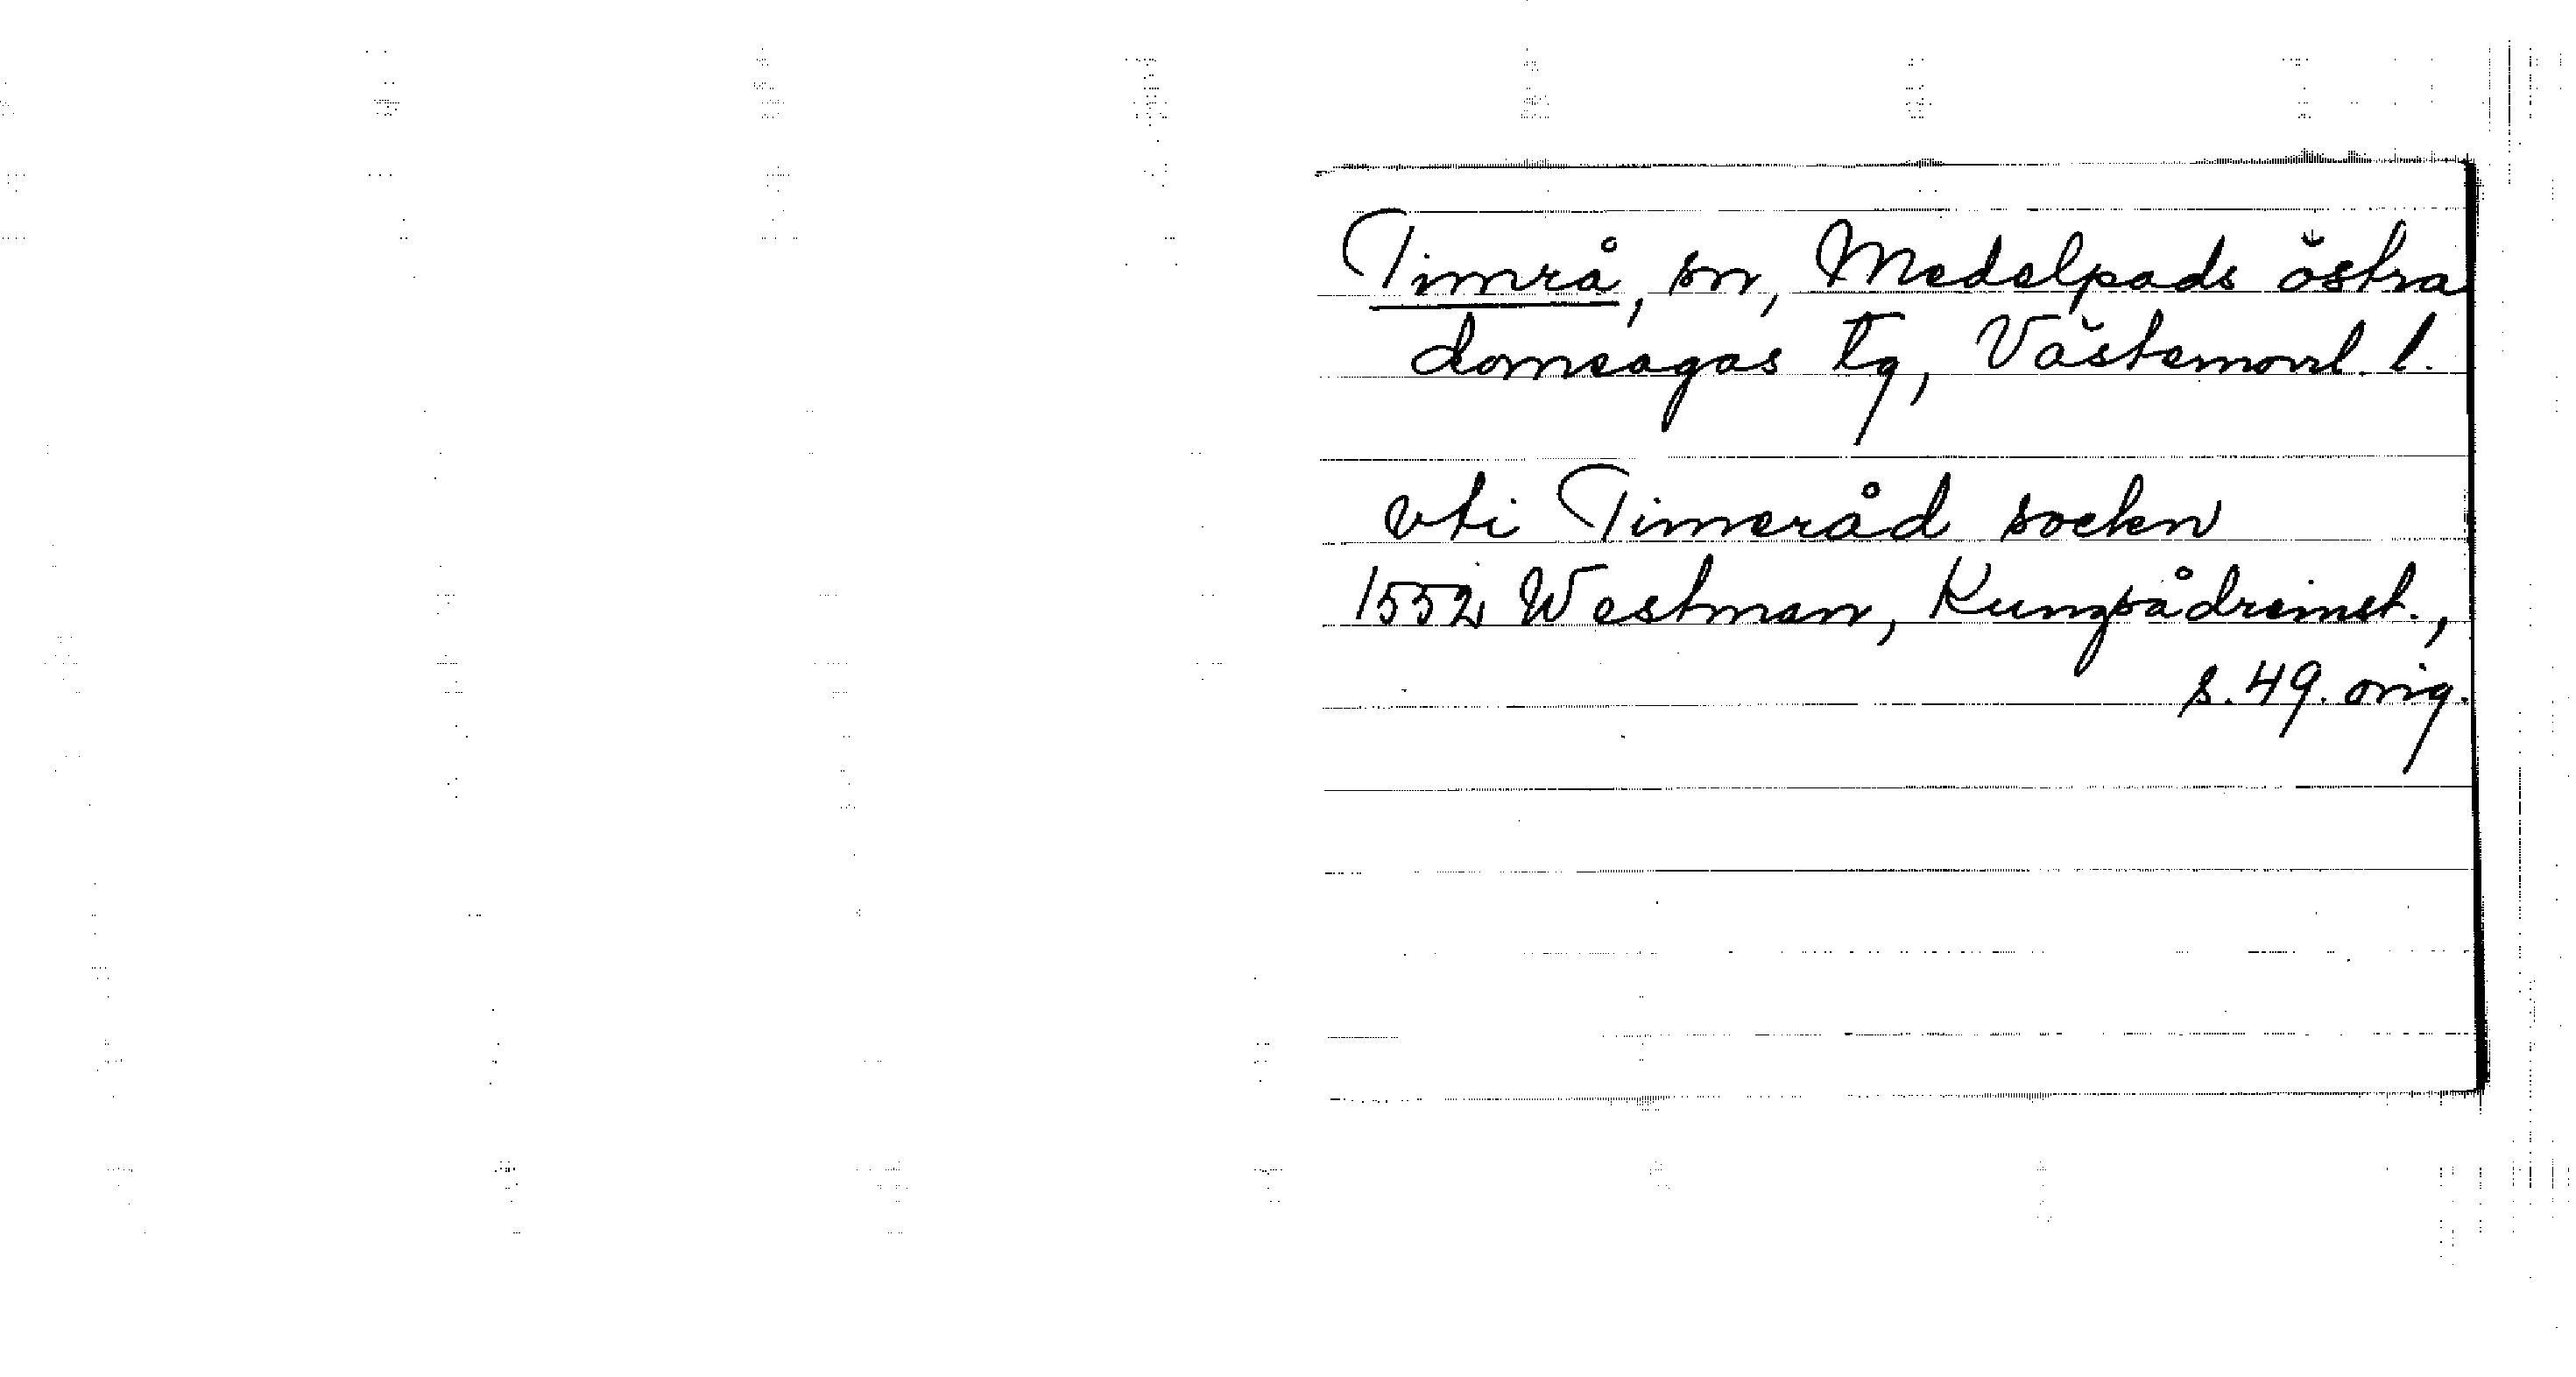 Timrå, sn, Medelpads östra
domsagas tg, Västernorrl. l.
vti Timeråd socken
1552 Westman, Kungsådreinst.,
s. 49. orig.